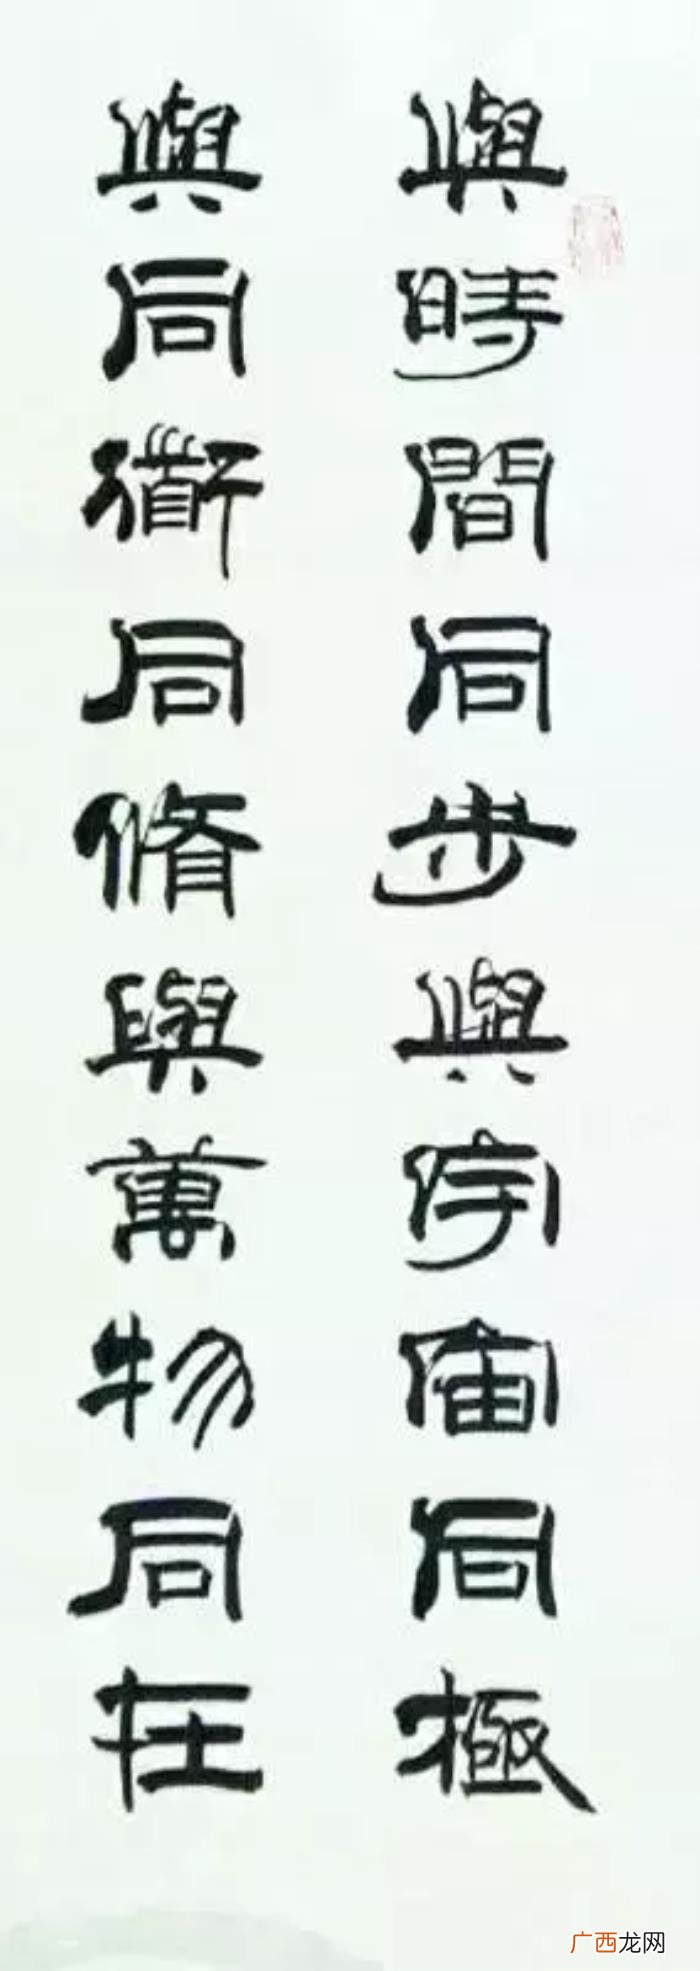 與時間同步與宇宙同極
與同衜同脩與萬物同在
广西龙网